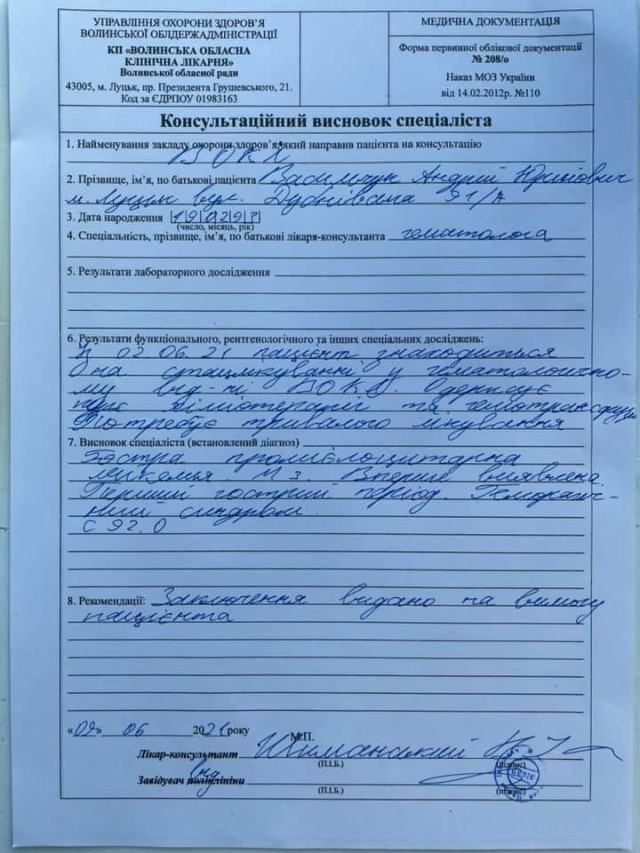 УПРАВЛІННЯ ОХОРОНИ ЗДОРОВ'Я
ВОЛИНСЬКОЇ ОБЛДЕРЖАДМІНІСТРАЦІЇ
КП «ВОЛИНСЬКА ОБЛАСНА
КЛІНІЧНА ЛІКАРНЯ»
Волинської обласної ради
43005, м. Луцьк, пр. Президента Грушевського, 21.
Код за ЄДРПОУ 01983163
МЕДИЧНА ДОКУМЕНТАЦІЯ
Форма первинної облікової документації
№ 208/о
Наказ МОЗ України
від 14.02.2012р. №110
Консультаційний висновок спеціаліста
1. Найменування закладу охорони здоров'я, який направив пацієнта на консультацію
ВОКЛ
2. Прізвище, ім'я, по батькові пацієнта Васильчук Андрій Юрійович
м. Луцьк вул. 91/А
3. Дата народження
(число, місяць, рік)
4. Спеціальність, прізвище, ім'я, по батькові лікаря-консультанта гематолога
5. Результати лабораторного дослідження
6. Результати функціонального, рентгенологічного та інших спеціальних досліджень:
З 02.06.21 пацієнт знаходиться
на стаціонуванні у гематологічно-
му від-ні ВОКЛ. Одержує
курс хіміотерапії та гемотрансфузії
Потребує тривалого лікування
7. Висновок спеціаліста (встановлений діагноз)
Гостра промієлоцитарна
лейкемія. М3. Вперше виявлена.
Перший гострий період. Геморагіч-
ний синдром.
С 92.0
8. Рекомендації: Заключення видано на вимогу
пацієнта
«09» 06 2021 року
М.П.
Лікар-консультант Шиманський
(П.І.Б.) (підпис)
Завідувач поліклініки від
(П.І.Б.) (підпис)